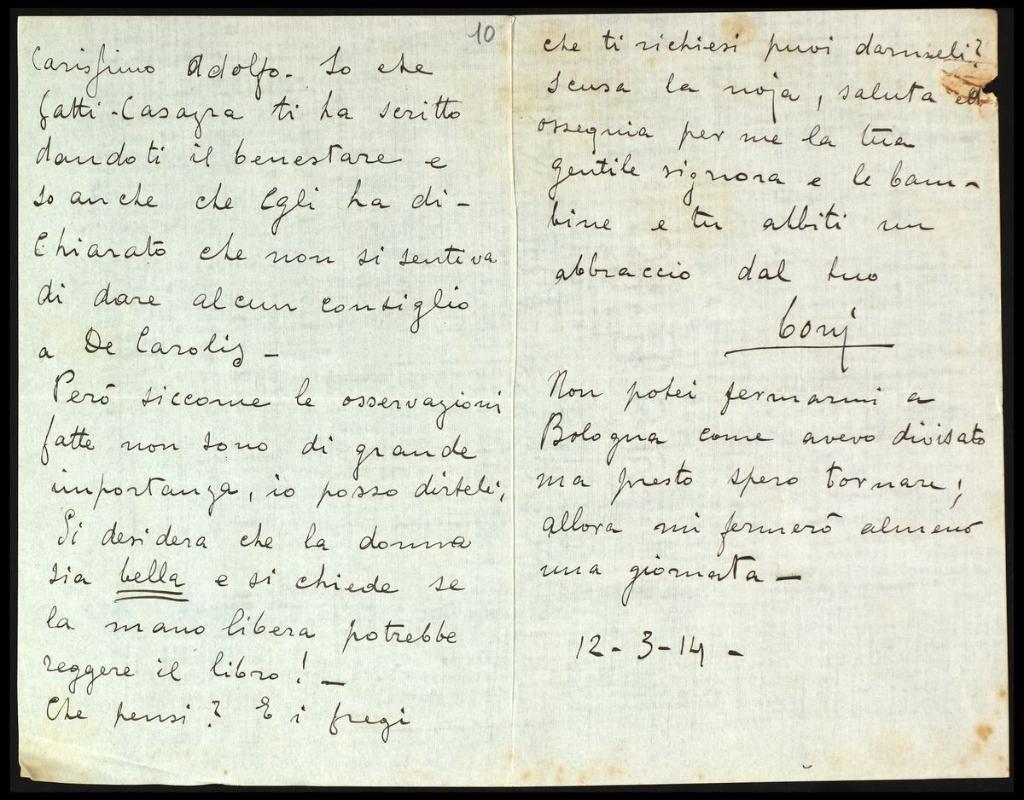 10
Carissimo Adolfo. So che
Gatti-Casazza ti ha scritto
dandoti il benestare e
so anche che Egli ha di-
chiarato che non si sentiva
di dare alcun consiglio
a De Carolis -
Però siccome le osservazioni
fatte non sono di grande
importanza, io posso dirtele;
Si desidera che la donna
sia bella e si chiede se
la mano libera potrebbe
reggere il libro! -
Che pensi? E i fregi
che ti richiesi puoi darmeli?
Scusa la noja, saluta ed
ossequia per me la tua
gentile signora e le bam-
bine e tu abbiti un
abbraccio dal tuo
Non potei fermarmi a
Bologna come avevo divisato
ma presto spero tornare;
allora mi fermerò almeno
una giornata -
12-3-14 -